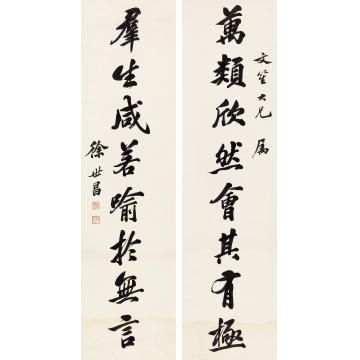 文笙大兄 属
萬類欣然會其有極
羣生咸若喻於無言
徐世昌